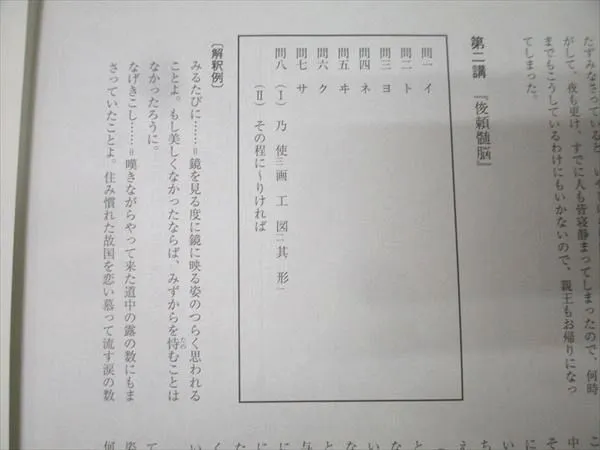 たずみなさっていると、いや
がして、夜も更け、すでに人も皆寝静まってしまったので、何時
までもこうしているわけにもいかないので、親王もお帰りになっ
てしまった。
第二講 『俊頼髄脳』
問一 イ
問二 ト
問三 ヨ
問四 ネ
問五 ヰ
問六 ク
問七 サ
問八 (Ⅰ) 乃 使㆔画 工 図㆓其 形㆒
(Ⅱ) その程に〜りければ
〔解釈例〕
みるたびに……＝鏡を見る度に鏡に映る姿のつらく思われる
ことよ。もし美しくなかったならば、みずからを恃(たの)むことは
なかったろうに。
なげきこし……＝嘆きながらやって来た道中の露の数にもま
さっていたことよ。住み慣れた故国を恋い慕って流す涙の数